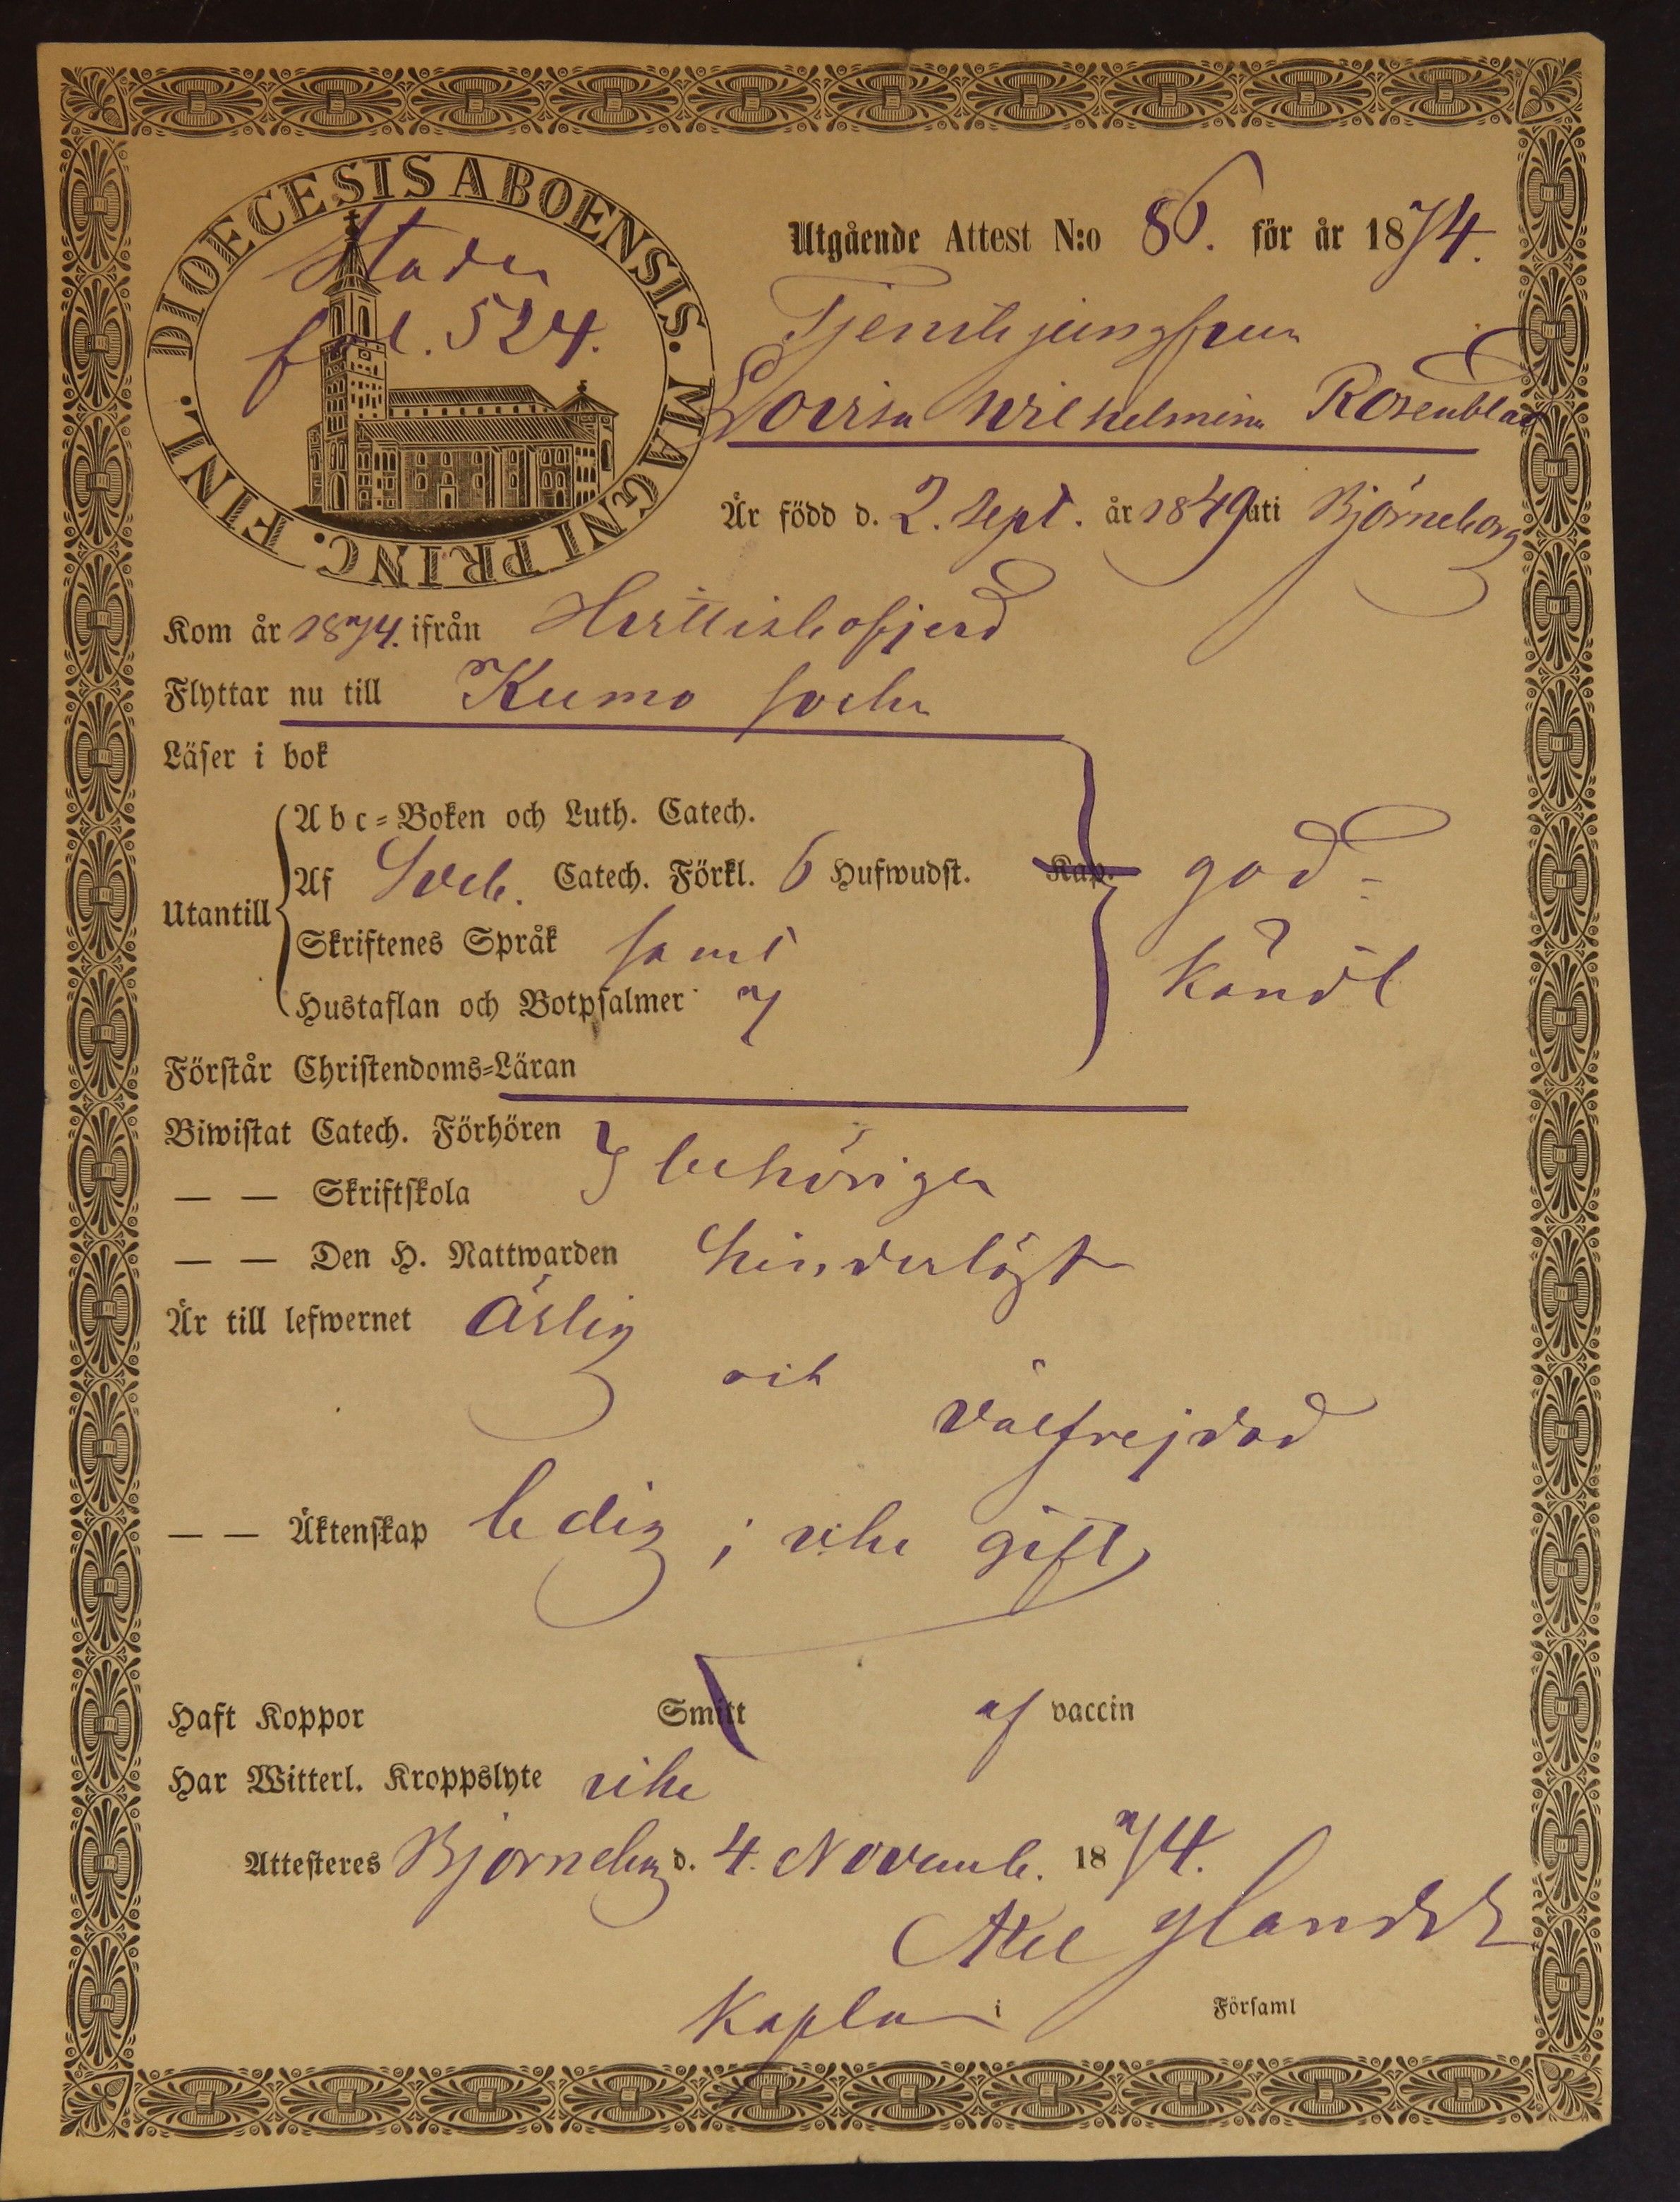 DIOECESIS ABOENSIS. MAGNI PRINC. FINL.
Staden
fol. 524.
Utgående Attest N:o 86. för år 1874.
Tjenstejungfrun
Lovisa Wilhelmina Rosenblad
Är född d. 2. Sept. år 1849 uti Björneborg
Kom år 1874. ifrån Hvittisbofjerd
Flyttar nu till Kumo socken
Läser i bok
Abc-Boken och Luth. Catech.
Utantill Af Sveb. Catech. Förkl. 6 Hufwudst. Kap. god-
Skriftenes Språk samt känd
Hustaflan och Botpsalmer 7
Förstår Christendoms-Läran
Biwistat Catech. Förhören I behörigen
— — Skriftskola
— — Den H. Nattwarden hinderlöst
Är till lefwernet ärlig
och
välfrejdad
— — Äktenskap ledig; icke gift
Haft Koppor Smitt af vaccin
Har Witterl. Kroppslyte icke
Attesteres Björneborg d. 4. Novemb. 1874.
Axel
Kaplan i Församl